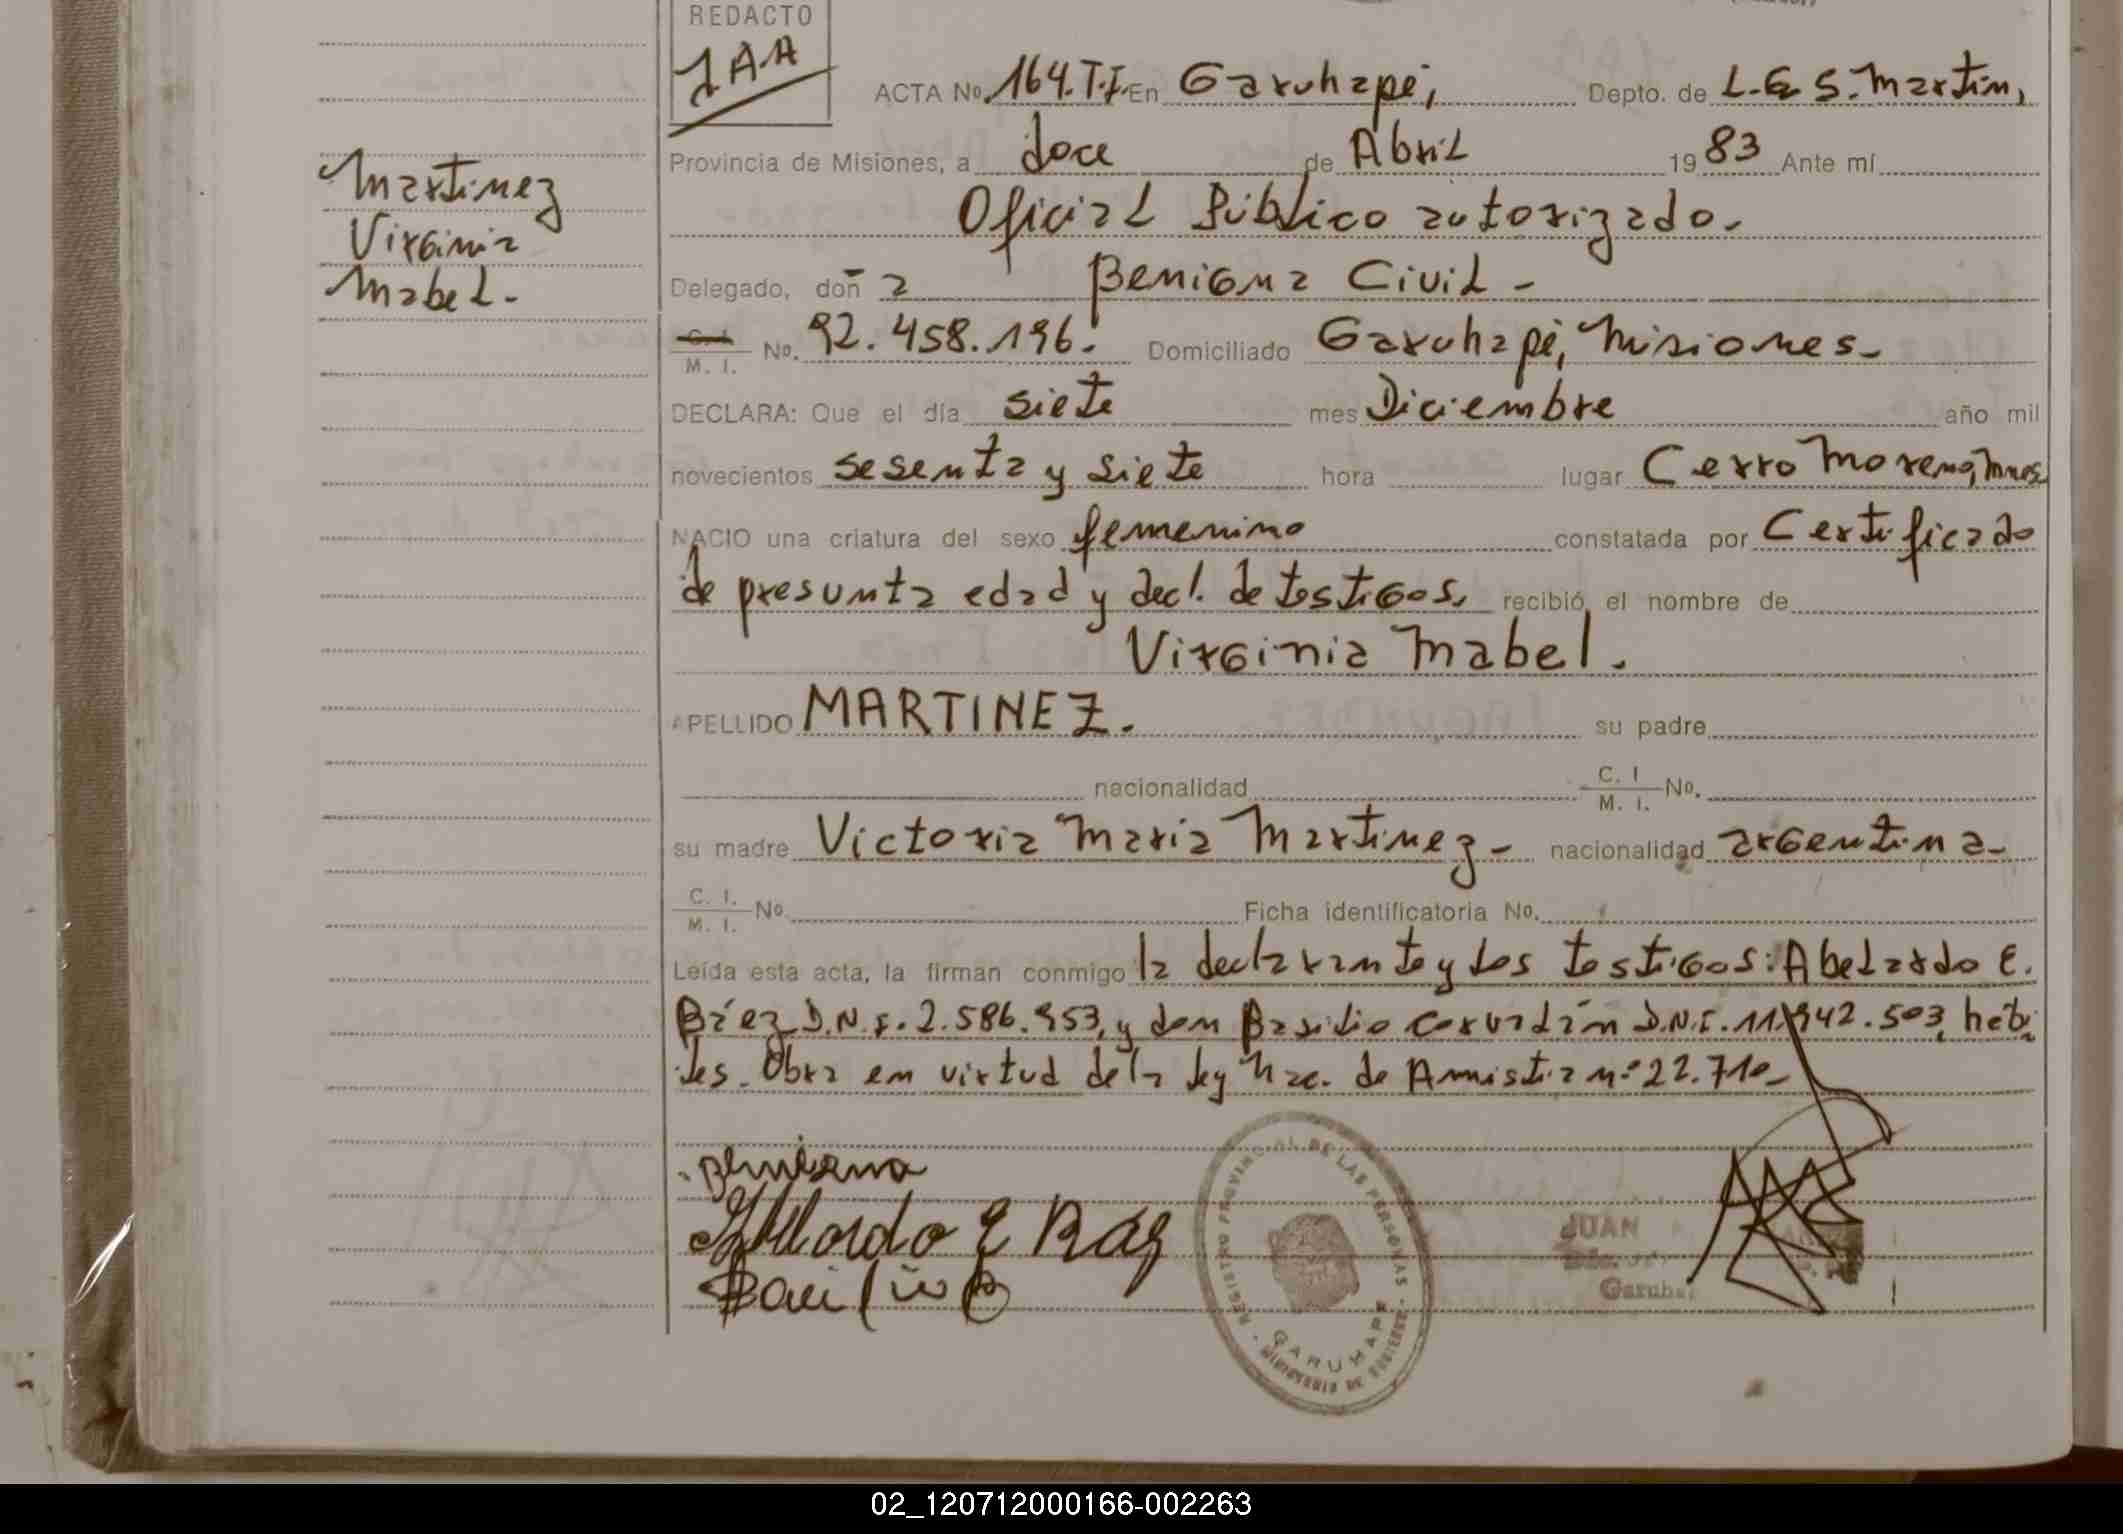 REDACTO
JAA
ACTA No. 164.T.I. En Garuhapé, Depto. de L.G.S. Martin,
Provincia de Misiones, a doce de Abril 1983 Ante mí
Oficial Público autorizado.
Delegado, doñ a Benigna Civil -
C. I. M. I. No. 92.458.196. Domiciliado Garuhapé, Misiones.
DECLARA: Que el día siete mes Diciembre año mil
novecientos sesenta y siete hora lugar Cerro Moreno, Mnes.
NACIO una criatura del sexo femenino constatada por Certificado
de presunta edad y decl. de testigos, recibió el nombre de
Virginia Mabel.
APELLIDO MARTINEZ. su padre
nacionalidad C. I M. I. No.
su madre Victoria Maria Martinez - nacionalidad argentina -
C. I. M. I. No. Ficha identificatoria No.
Leída esta acta, la firman conmigo la declarante y los testigos: Abelardo E.
Báez D.N.I. 2.586.953, y don Basilio D.N.I. 11.942.503, hábi
les. Obra en virtud de la ley Nac. de Amnistia nº 22.710-
Martinez
Virginia
Mabel.
Benigna
Abelardo E Báez
Basilio
REGISTRO PROVINCIAL DE LAS PERSONAS - MINISTERIO DE GOBIERNO -
GARUHAPE
JUAN
Garuha
02_120712000166-002263